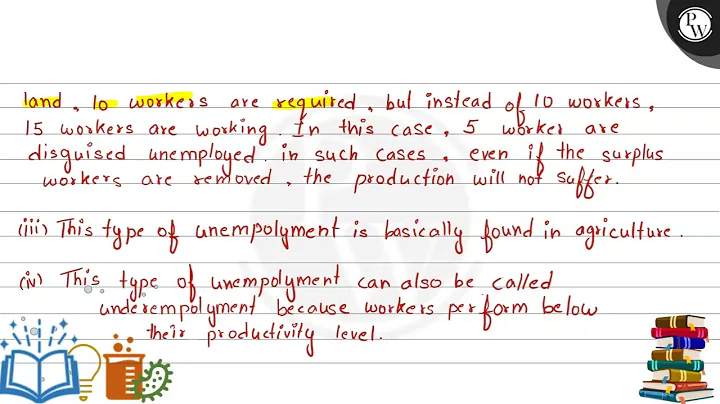 P
W
land, 10 workers are required, but instead of 10 workers,
15 workers are working. In this case, 5 worker are
disguised unemployed. in such cases, even if the surplus
workers are removed, the production will not suffer.
(iii) This type of unempolyment is basically found in agriculture.
(iv) This type of unempolyment can also be called
underempolyment because workers perform below
their productivity level.